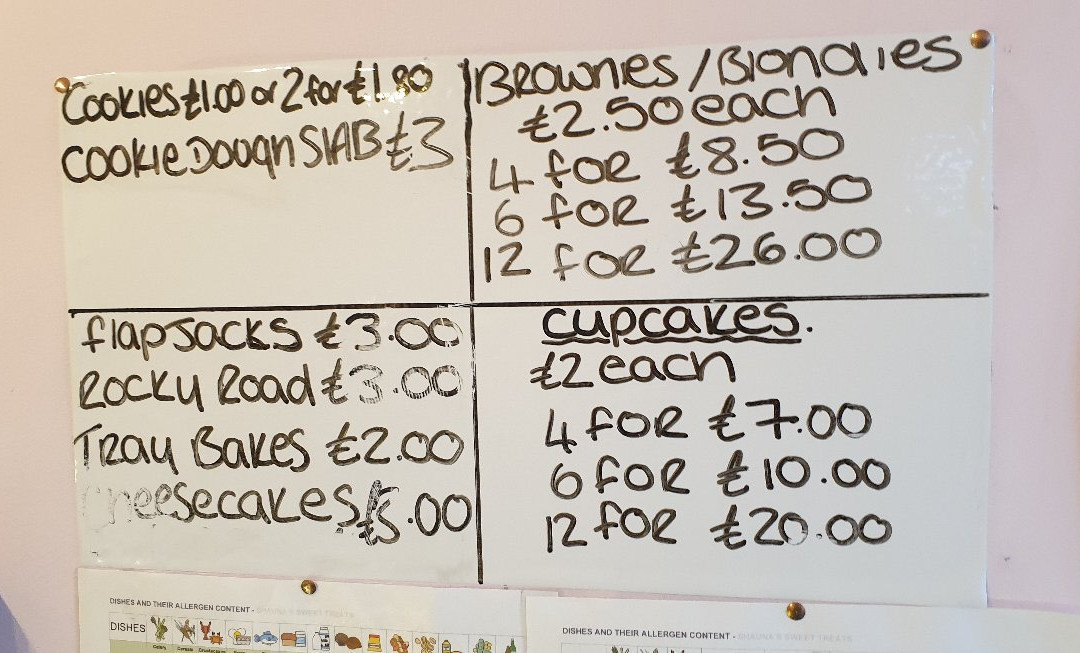 Cookies £1.00 or 2 for £1.80
Cookie Dough SlAB £3
Brownies / Blondies
£2.50 each
4 for £8.50
6 for £13.50
12 for £26.00
flapJacks £3.00
Rocky Road £3.00
Tray Bakes £2.00
Cheesecakes £5.00
cupcakes.
£2 each
4 for £7.00
6 for £10.00
12 for £20.00
DISHES AND THEIR ALLERGEN CONTENT -
DISHES
DISHES AND THEIR ALLERGEN CONTENT -